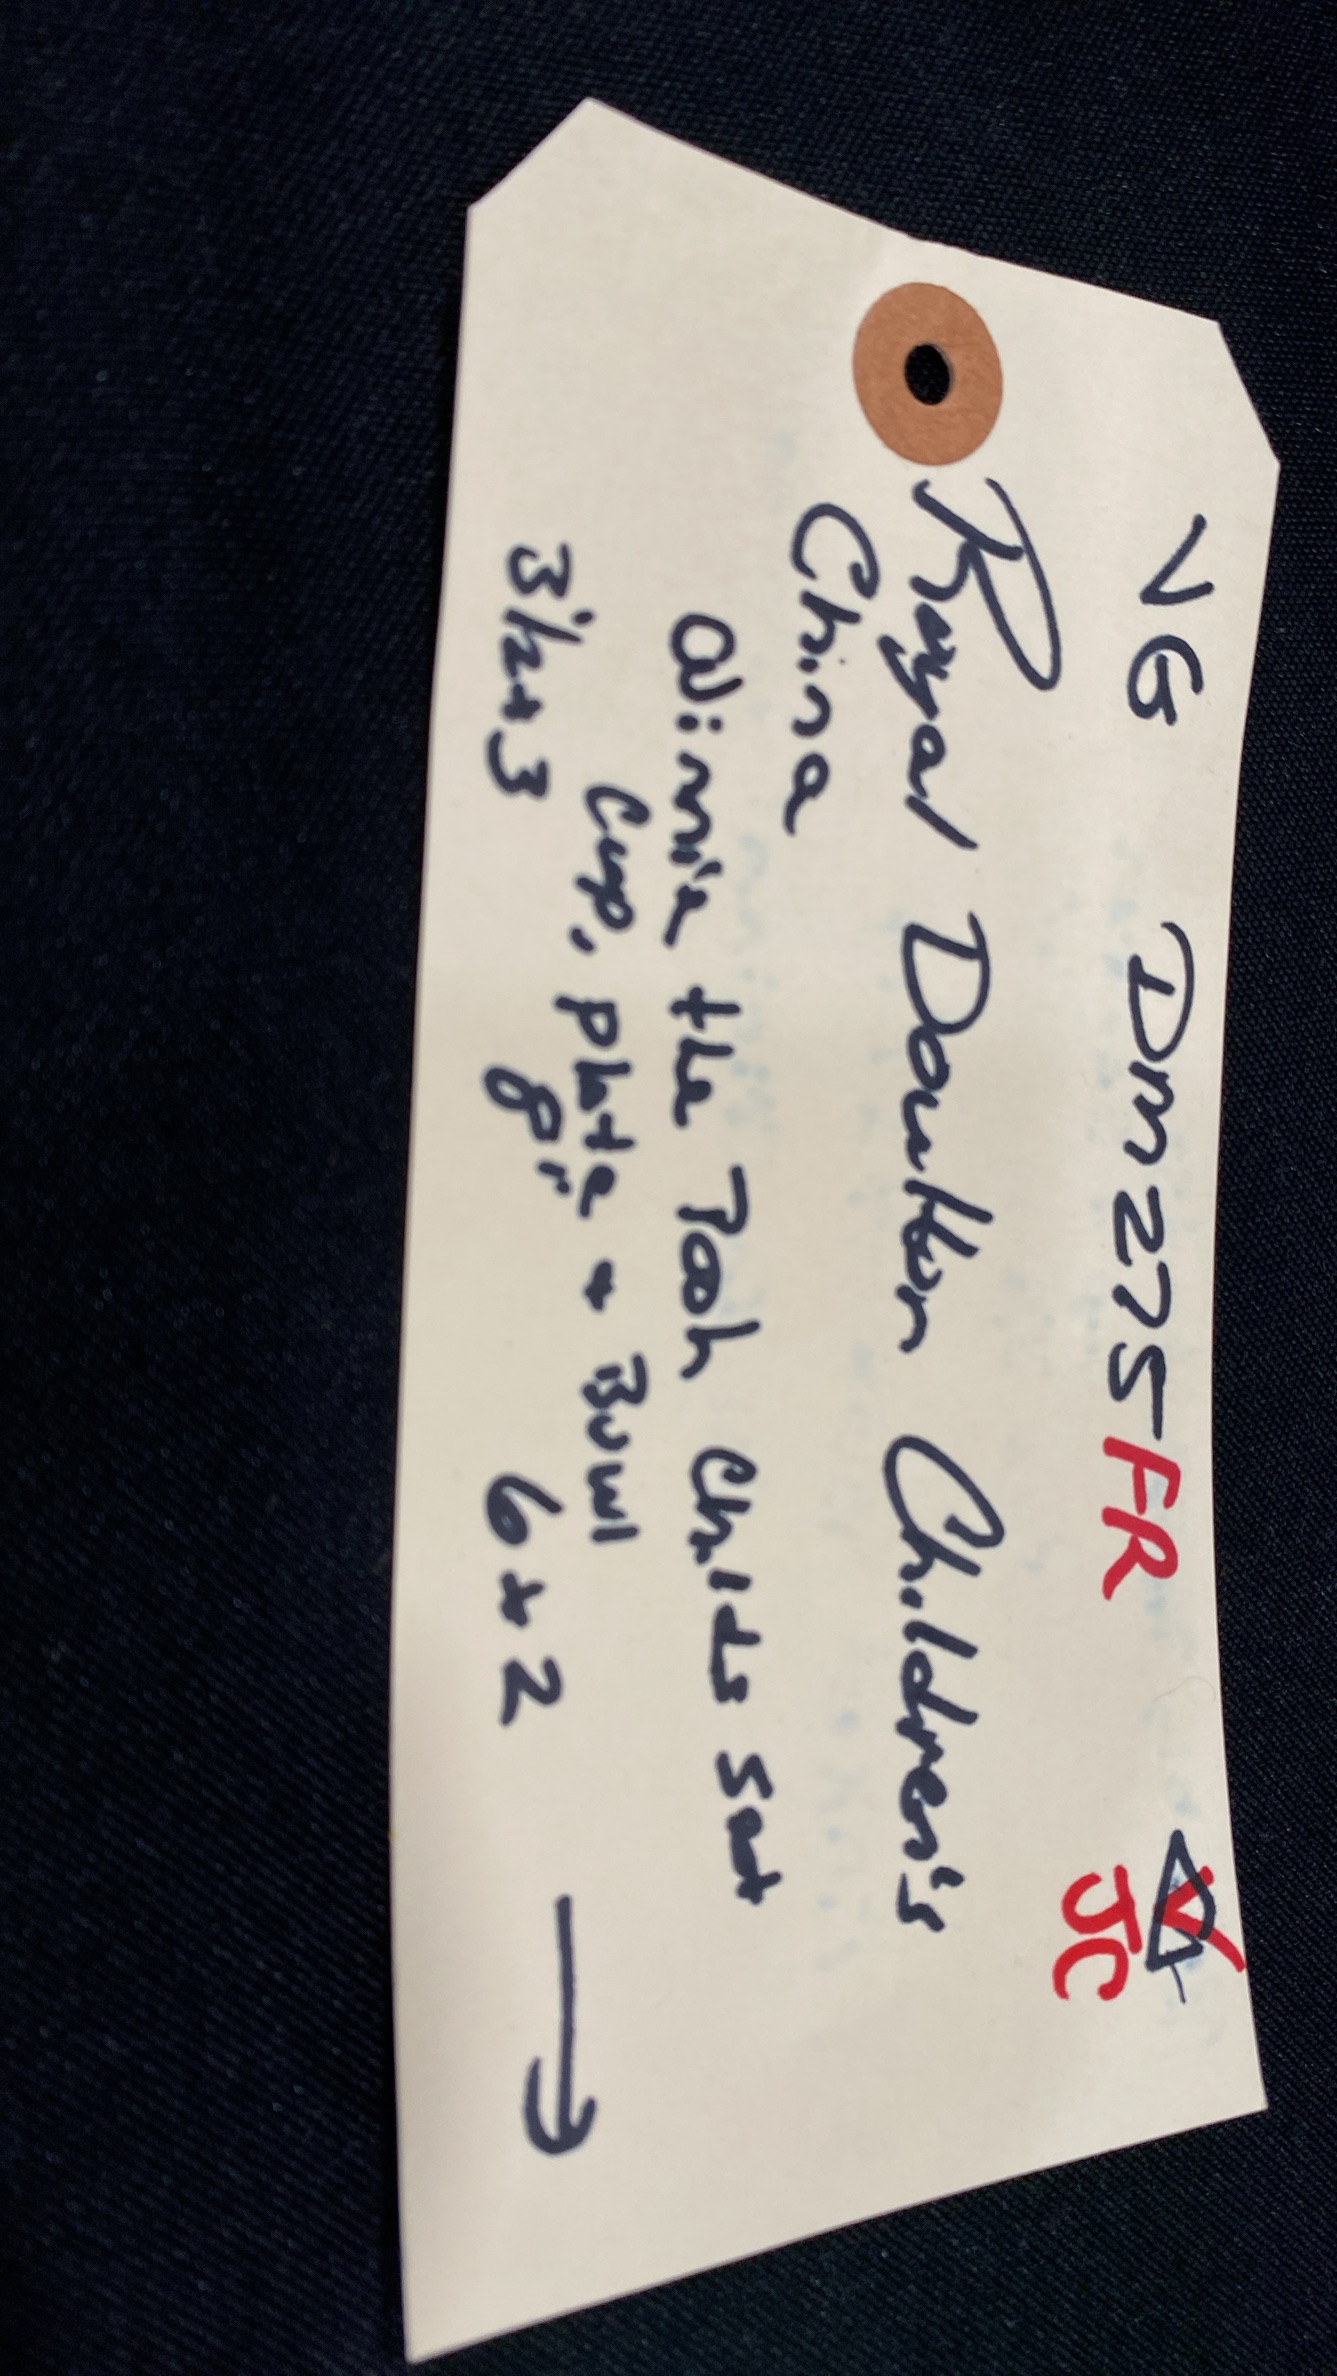 VG DM275FR
JC
Royal Doulton Children's
China
Winnie the Pooh Childs Set
Cup, plate + Bowl
3 1/2 x 3 8" 6 x 2